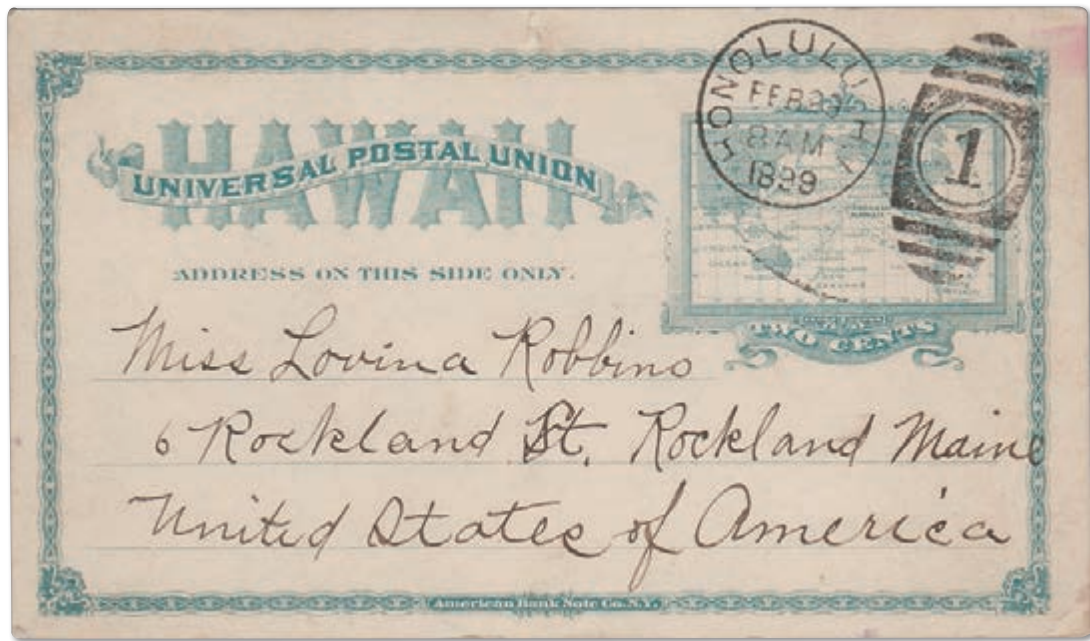 HAWAII
UNIVERSAL POSTAL UNION
ADDRESS ON THIS SIDE ONLY.
HONOLULU H.I.
FEB
8 AM
1899
1
TWO CENTS
Miss Lovina Robbins
6 Rockland St. Rockland Maine
United States of America
American Bank Note Co. N.Y.